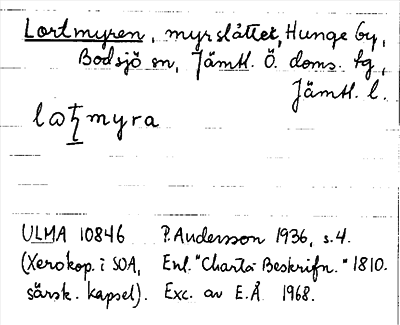 Lortmyren, myrslåttet, Hunge by,
Bodsjö sn, Jämtl. Ö. doms. tg,
Jämtl. l.
myra
ULMA 10846 P. Andersson 1936, s. 4.
(Xerokop. i SOA, Enl. "Charta Beskrifn." 1810.
särsk. kapsel). Exc. av E.Å 1968.